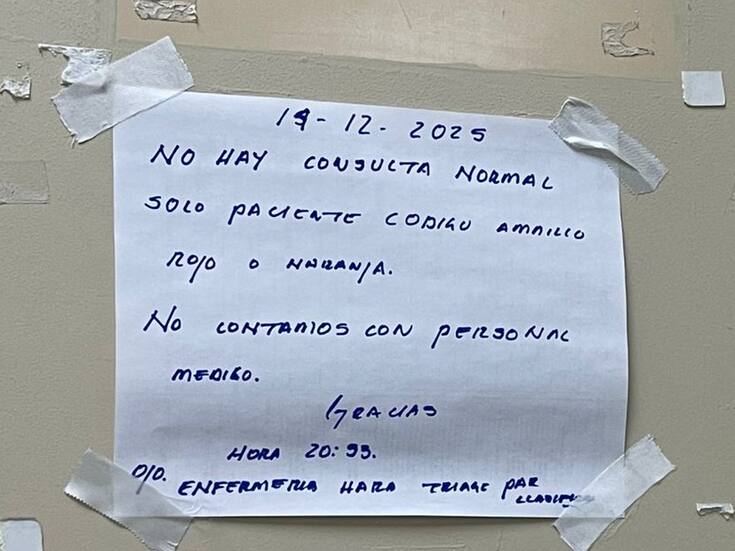 19-12-2025
NO HAY CONSULTA NORMAL
SOLO PACIENTE CODIGO AMARILLO
ROJO O NARANJA.
NO CONTAMOS CON PERSONAL
MEDICO.
GRACIAS
HORA 20:
OJO. ENFERMERIA HARA TRIAGE PAR